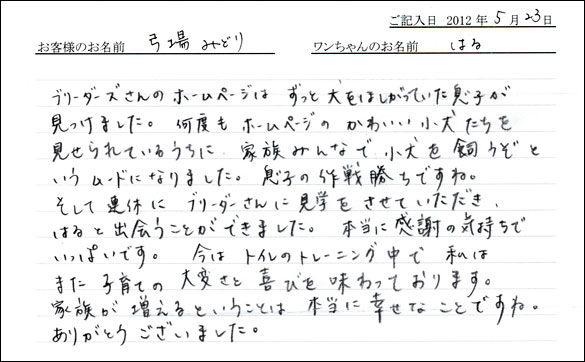 ご記入日 2012年5月23日
お客様のお名前 弓場 みどり ワンちゃんのお名前 はる
ブリーダーズさんのホームページは ずっと犬をほしがっていた息子が
見つけました。何度もホームページの かわいい小犬たちを
見せられているうちに 家族みんなで小犬を飼うぞと
いうムードになりました。息子の作戦勝ちですね。
そして連休に ブリーダーさんに見学をさせていただき、
はると出会うことができました。本当に感謝の気持ちで
いっぱいです。今はトイレのトレーニング中で 私は
また子育ての大変さと喜びを味わっております。
家族が増えるということは 本当に幸せなことですね。
ありがとうございました。